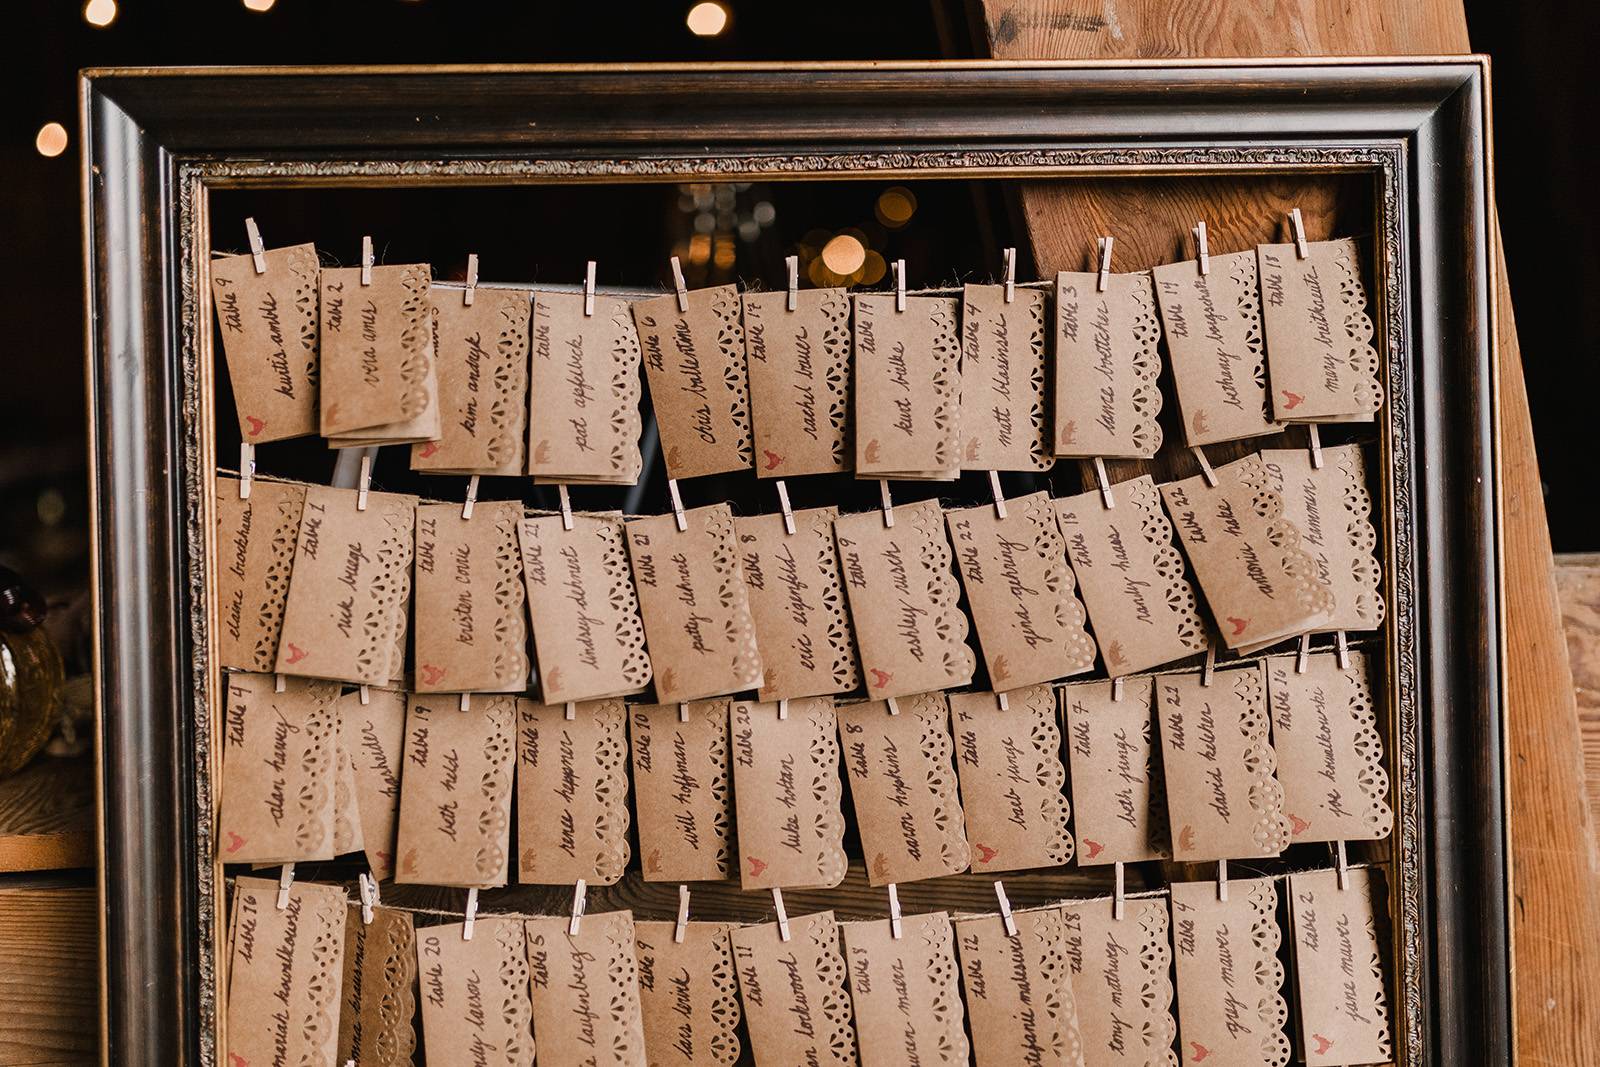 table 9
kurtis amble
table 2
vera ames
kim andryk
table 19
pat apfelbeck
table 6
chris ballentine
table 17
rachel breuer
table 19
kurt bilke
table 4
matt blasinski
table 3
lance bretcher
table 14
bethany
table 18
mary breitkreutz
elaine brockhaus
table 1
rick buege
table 22
kristen corrie
table 21
lindsey dehnert
table 21
patty dehnert
table 8
eric eigenfeld
table 9
ashley
table 22
gena gehring
table 18
randy haas
table 22
antonia hake
20
ben hammen
table 4
alan
hasheider
table 19
beth held
table 7
renee heppner
table 10
will hoffman
table 20
luke holtan
table 8
aaron hopkins
table 7
barb junge
table 7
beth junge
table 22
david kelcher
table 16
joe kowalkowski
table 16
mariah kowalkowski
krausman
table 20
laser
table 15
laufenberg
table 9
lars
table 11
lockwood
table 8
maen
table 12
stefanie
table 18
tony mathwig
table 4
greg maurer
table 2
jane maurer